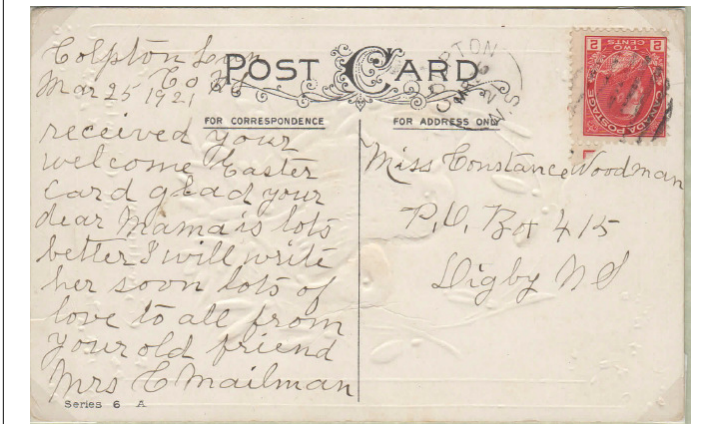 Colpton Lun
Co NS
Mar 25 1921
POST CARD
FOR CORRESPONDENCE
FOR ADDRESS ONLY
received your
welcome Easter
card glad your
dear Mama is lots
better I will write
her soon lots of
love to all from
your old friend
Mrs C Mailman
Series 6 A
Miss Constance Woodman
P.O. Box 415
Digby N S
CANADA POSTAGE
TWO
CENTS
2
2